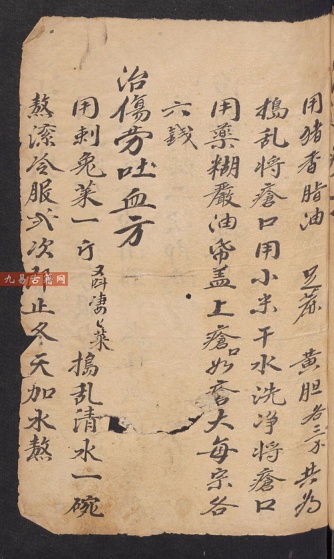 用猪香脂油 芝蔴 黄胆 各三分 共为
搗乱将瘡口用小米干水洗净将瘡口
用藥糊嚴油帋盖上瘡口如 大每宗各
六錢
治傷劳吐血方
用刺兔菜一 又叫凄凄菜 搗乱清水一碗
熬滚冷服 次即止冬天加水熬
九易古籍网